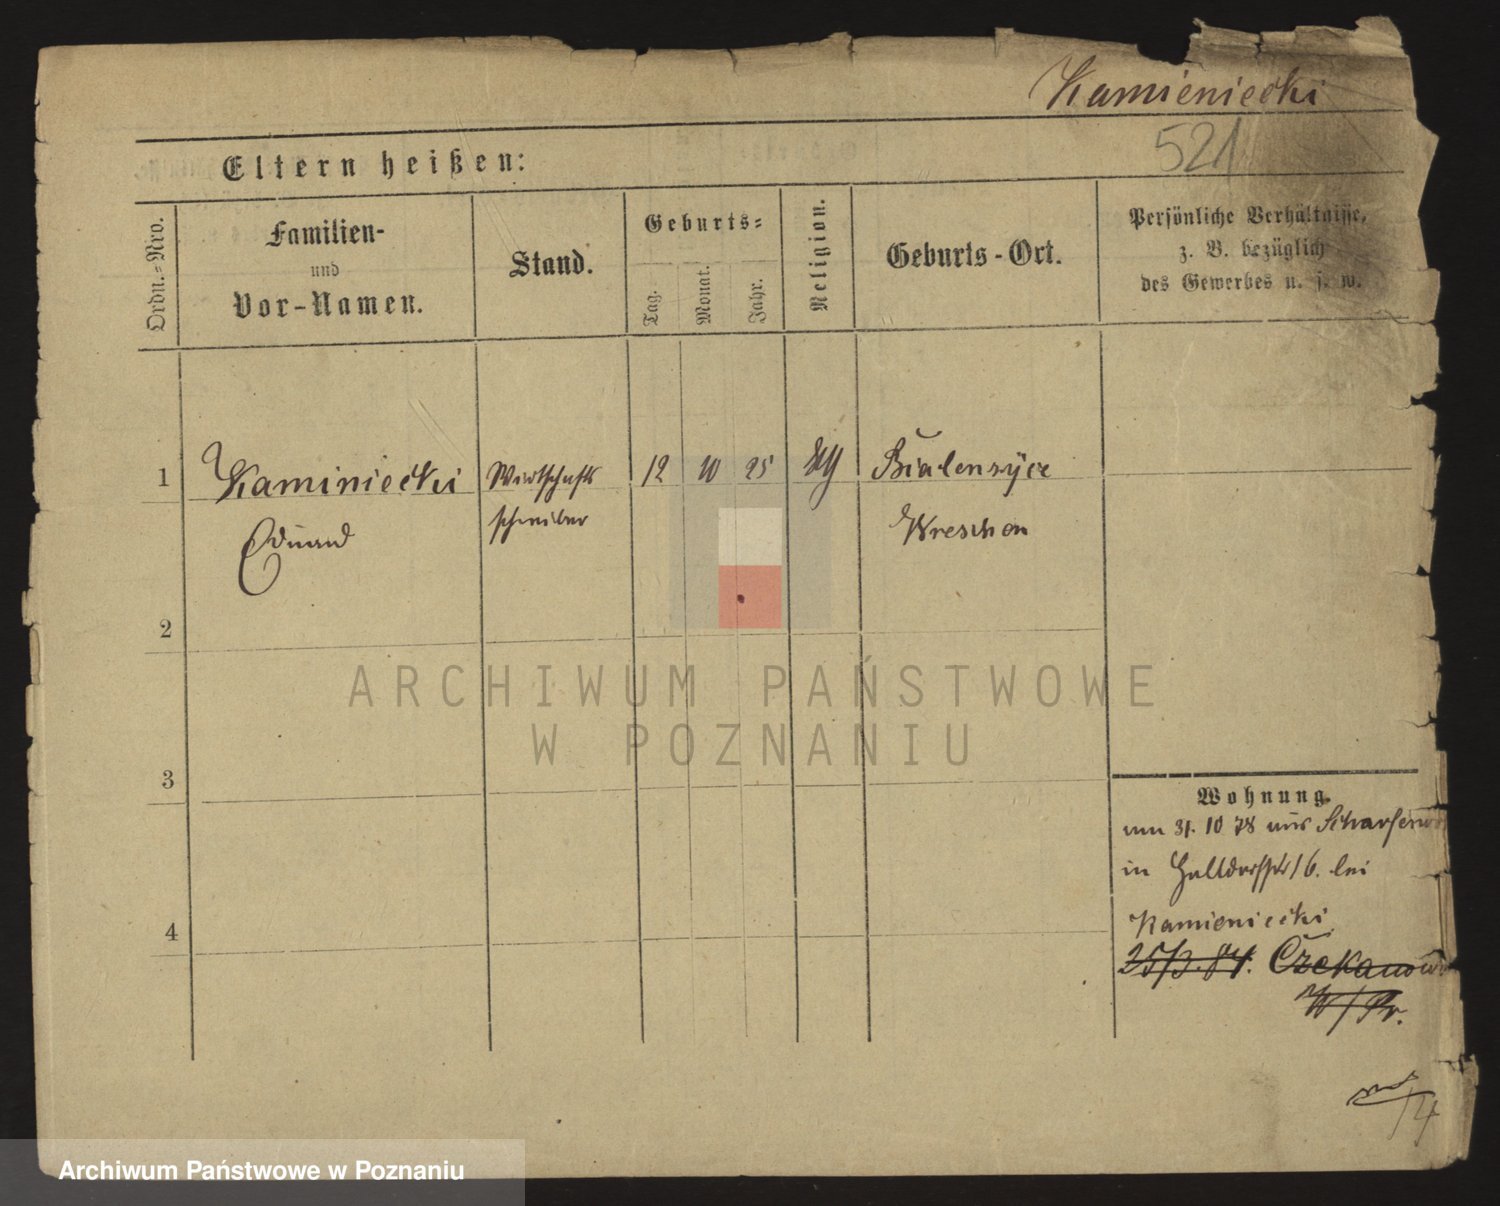 Kamieniecki
521
Eltern heißen:
Ordn.=Nro.
Familien-
und
Vor-Namen.
Stand.
Geburts=
Tag.
Monat.
Jahr.
Religion.
Geburts-Ort.
Persönliche Verhältnisse,
z. B. bezüglich
des Gewerbes u. s. w.
1
Kaminiecki
Eduard
Wirtschafts
schreiber
12 10 25
Bialenzyce
Wreschen
2
3
4
Wohnung.
am 31. 10 78 aus
in 16. bei
Kamieniecki
25/3. 84. Czekanow
W/Pr.
ARCHIWUM PAŃSTWOWE
W POZNANIU
Archiwum Państwowe w Poznaniu